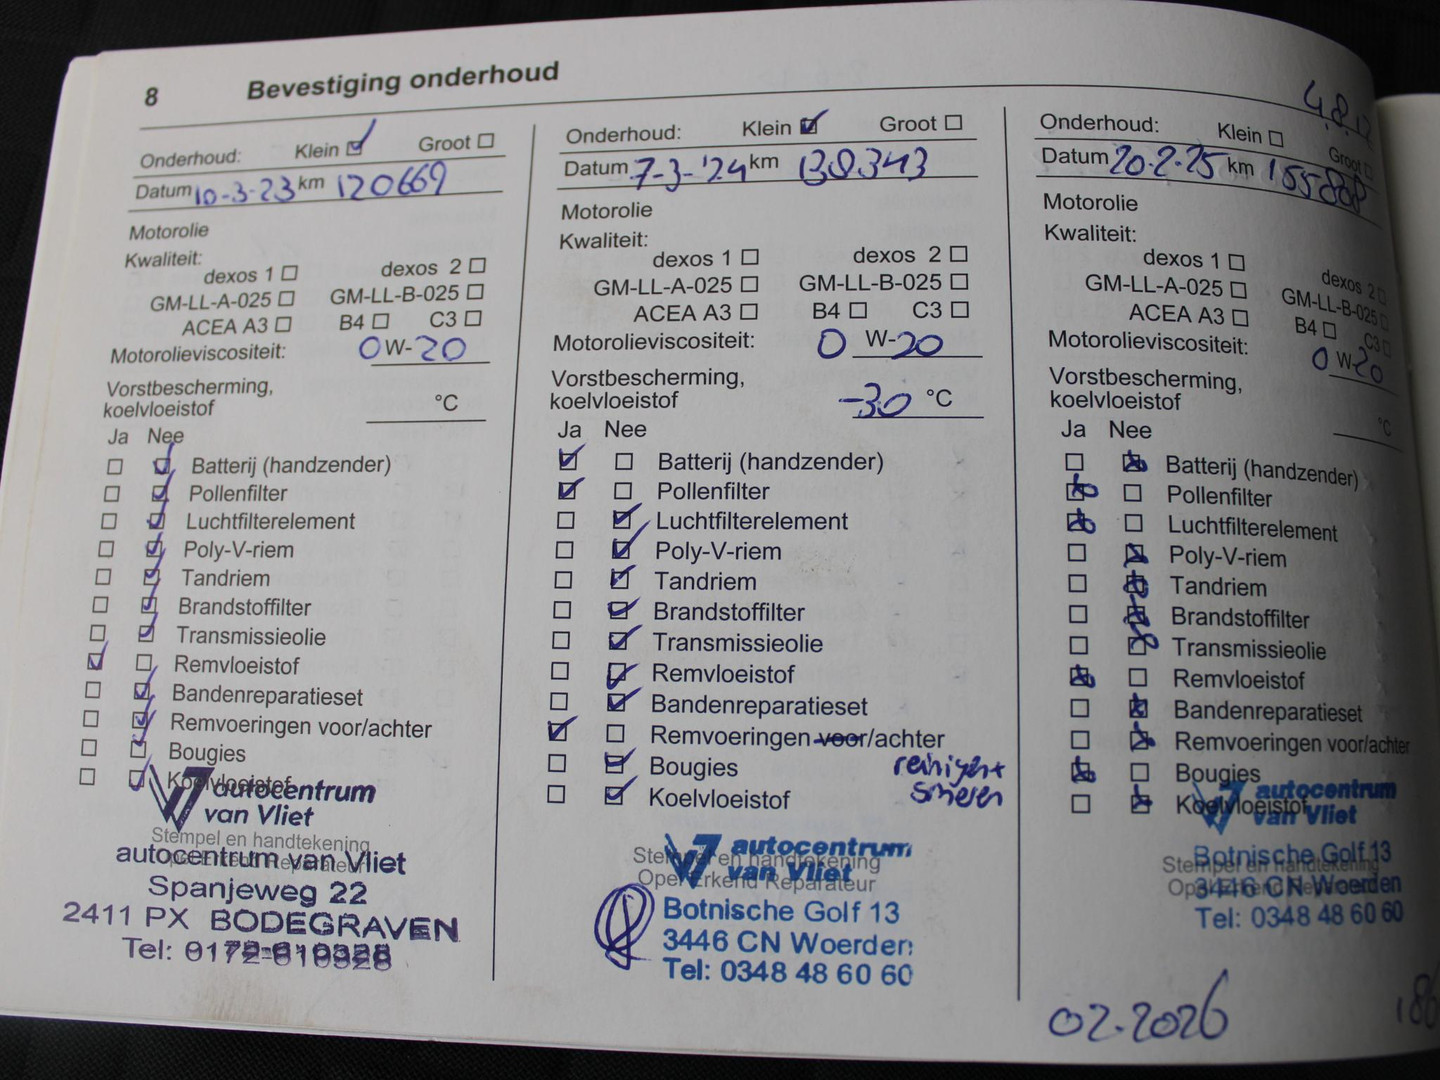 8 Bevestiging onderhoud
Onderhoud: Klein Groot
Datum 10-3-23 km 120669
Motorolie
Kwaliteit:
dexos 1 dexos 2
GM-LL-A-025 GM-LL-B-025
ACEA A3 B4 C3
Motorolieviscositeit: 0 W-20
Vorstbescherming,
koelvloeistof °C
Ja Nee
Batterij (handzender)
Pollenfilter
Luchtfilterelement
Poly-V-riem
Tandriem
Brandstoffilter
Transmissieolie
Remvloeistof
Bandenreparatieset
Remvoeringen voor/achter
Bougies
Koelvloeistof
autocentrum
van Vliet
Stempel en handtekening
autocentrum van Vliet
Spanjeweg 22
2411 PX BODEGRAVEN
Tel: 0172-610328
Onderhoud: Klein Groot
Datum 7-3-'24 km 138343
Motorolie
Kwaliteit:
dexos 1 dexos 2
GM-LL-A-025 GM-LL-B-025
ACEA A3 B4 C3
Motorolieviscositeit: 0 W-20
Vorstbescherming,
koelvloeistof -30 °C
Ja Nee
Batterij (handzender)
Pollenfilter
Luchtfilterelement
Poly-V-riem
Tandriem
Brandstoffilter
Transmissieolie
Remvloeistof
Bandenreparatieset
Remvoeringen voor/achter
Bougies
Koelvloeistof
autocentrum
van Vliet
Stempel en handtekening
Opel Erkend Reparateur
Botnische Golf 13
3446 CN Woerden
Tel: 0348 48 60 60
4.8.
Onderhoud: Klein Groot
Datum 20-2-25 km 155808
Motorolie
Kwaliteit:
dexos 1 dexos 2
GM-LL-A-025 GM-LL-B-025
ACEA A3 B4 C3
Motorolieviscositeit: 0 W-20
Vorstbescherming,
koelvloeistof °C
Ja Nee
Batterij (handzender)
Pollenfilter
Luchtfilterelement
Poly-V-riem
Tandriem
Brandstoffilter
Transmissieolie
Remvloeistof
Bandenreparatieset
Remvoeringen voor/achter
Bougies
Koelvloeistof
autocentrum
van Vliet
Stempel en handtekening
Botnische Golf 13
3446 CN Woerden
Tel: 0348 48 60 60
02.2026